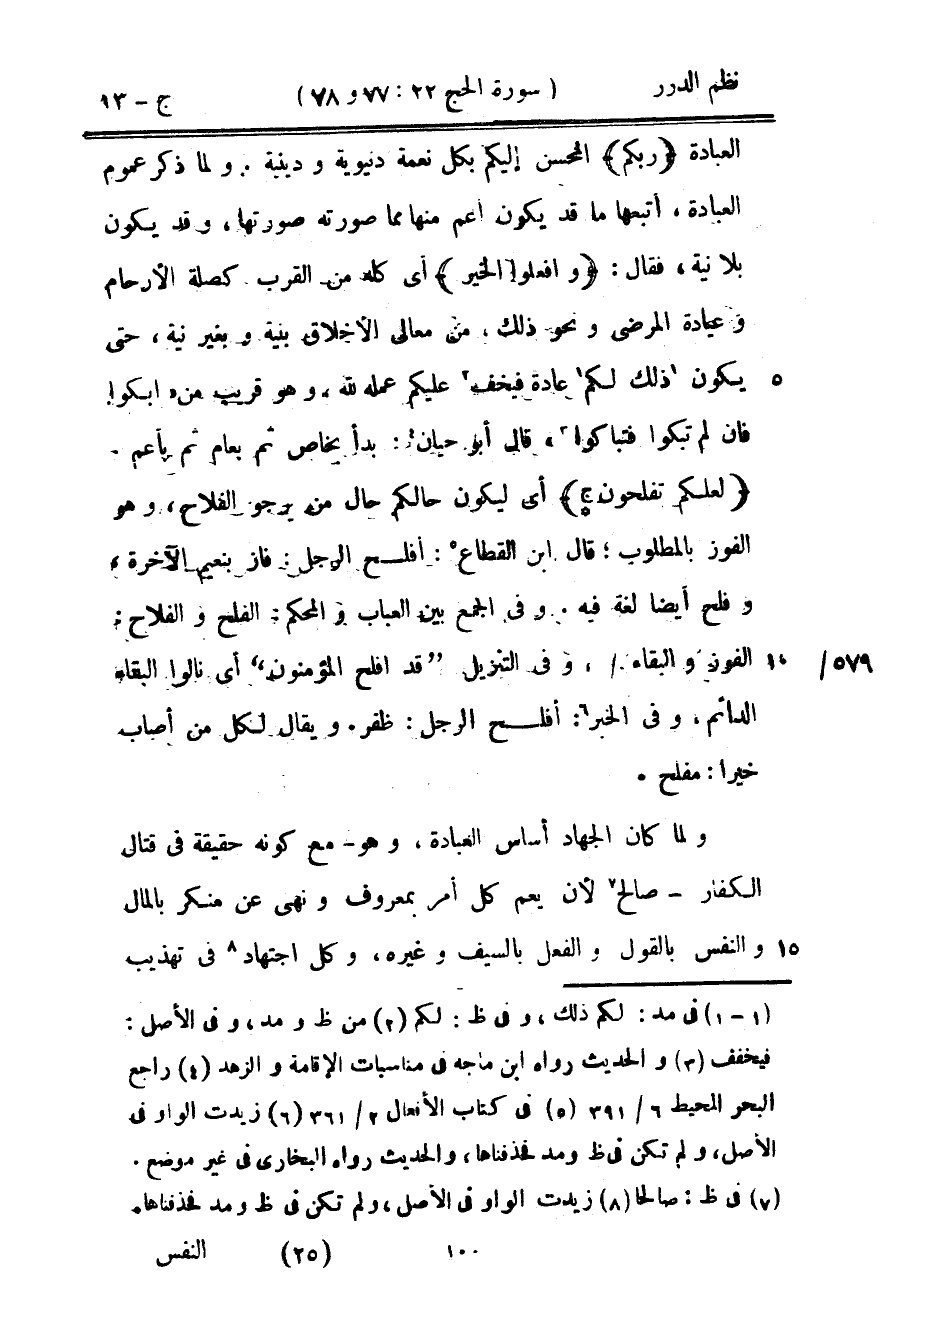 نظم الدرر ( سورة الحج ٢٢ : ٧٧ و ٧٨ ) ج – ١٣
العبادة ﴿ربكم﴾ المحسن إليكم بكل نعمة دنيوية و دينية . و لما ذكر عموم
العبادة ، أتبعها ما قد يكون أعم منها مما صورته صورتها ، و قد يكون
بلا نية ، فقال : ﴿و افعلوا الخير﴾ أى كله من القرب كصلة الأرحام
و عيادة المرضى و نحو ذلك . من معالى الأخلاق بنية و بغير نية ، حتى
٥ يكون ١ذلك لكم١ عادة فيخف٢ عليكم عمله لله ، و هو قريب من « ابكوا
فان لم تبكوا فتباكوا٣ » ، قال أبو حيان٤ : بدأ بخاص ثم بعام ثم بأعم .
﴿لعلكم تفلحون﴾ أى ليكون حالكم حال من يرجو الفلاح ، و هو
الفوز بالمطلوب ؛ قال ابن القطاع٥ : أفلح الرجل : فاز بنعيم الآخرة ،
و فلح أيضا لغة فيه . و فى الجمع بين العباب و المحكم : الفلح و الفلاح :
٥٧٩/ ١٠ الفوز و البقاء / ، و فى التنزيل ”قد افلح المؤمنون“ أى نالوا البقاء
الدائم ، و فى الخبر٦ : أفلح الرجل : ظفر . و يقال لكل من أصاب
خيرا : مفلح .
و لما كان الجهاد أساس العبادة ، و هو – مع كونه حقيقة فى قتال
الكفار – صالح٧ لأن يعم كل أمر بمعروف و نهى عن منكر بالمال
١٥ و النفس بالقول و الفعل بالسيف و غيره ، و كل اجتهاد٨ فى تهذيب
(١ – ١) فى مد : لكم ذلك ، و فى ظ : لكم (٢) من ظ و مد ، و فى الأصل :
فيخفف (٣) و الحديث رواه ابن ماجه فى مناسبات الإقامة و الزهد (٤) راجع
البحر المحيط ٦ / ٣٩١ (٥) فى كتاب الأفعال ٢ / ٣٦١ (٦) زيدت الواو فى
الأصل ، و لم تكن فى ظ ومد فحذفناها ، والحديث رواه البخارى فى غير موضع .
(٧) فى ظ : صالحا (٨) زيدت الواو فى الأصل ، ولم تكن فى ظ و مد فحذفناها .
١٠٠ (٢٥) النفس